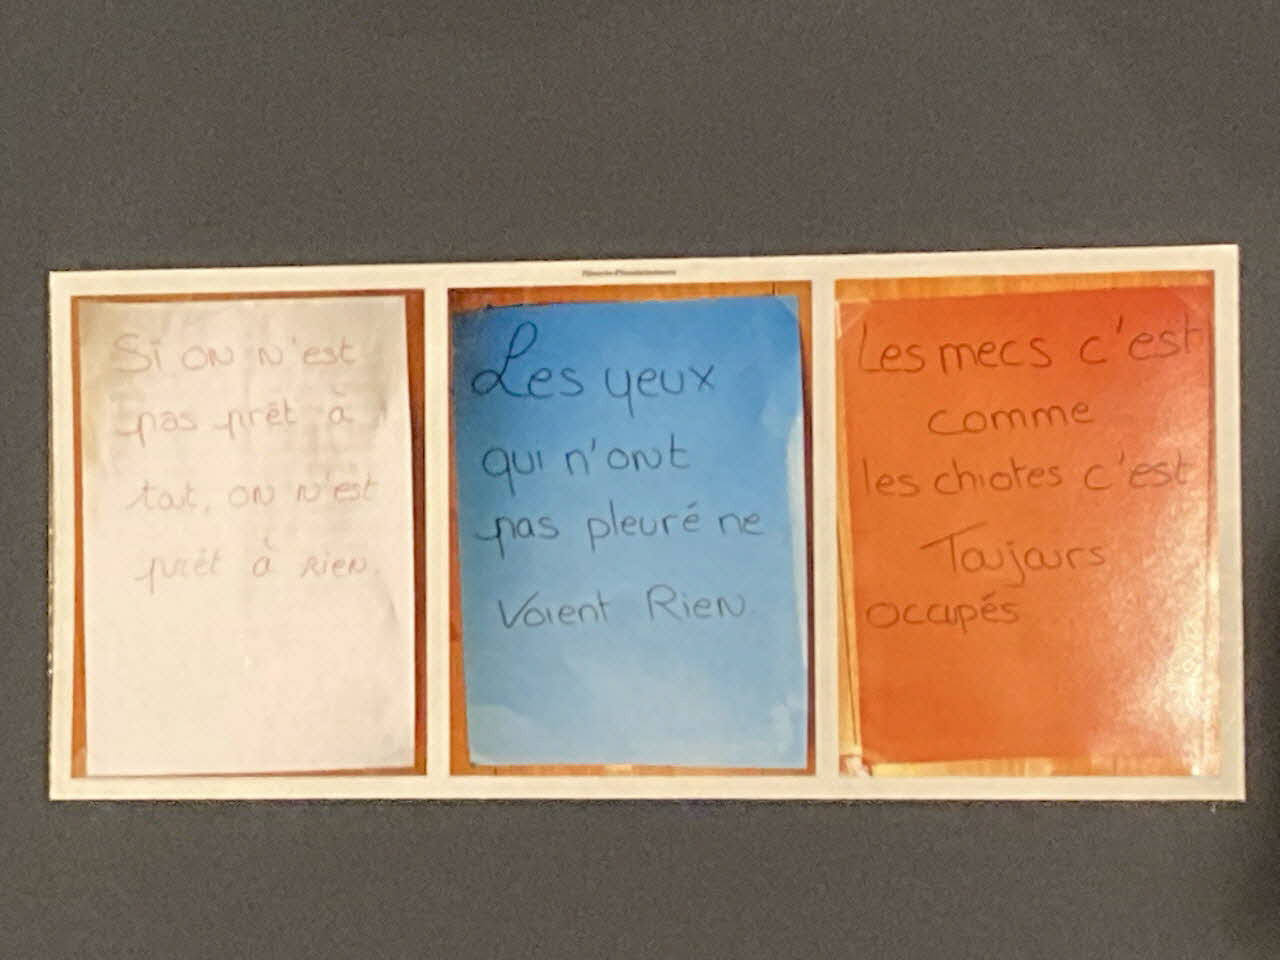 Si on n'est
pas prêt à
tout, on n'est
prêt à rien.
Les yeux
qui n'ont
pas pleuré ne
voient Rien.
Les mecs c'est
comme
les chiotes c'est
Toujours
occupés